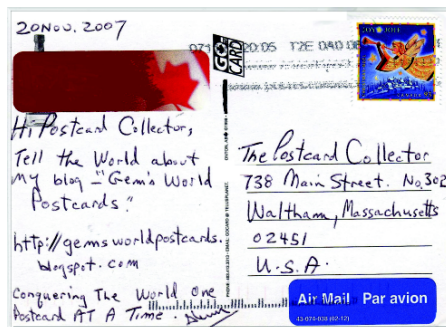 20 NOV. 2007
Hi Postcard Collector,
Tell the World about
my blog - "Gem's World
Postcards."
http://gemsworldpostcards.
blogspot.com
Conquering The World One
Postcard AT A Time.
GO
CARD
20:05 T2E 0A0
The Postcard Collector
738 Main Street. No. 302
Waltham, Massachusetts
02451
U.S.A.
Air Mail Par avion